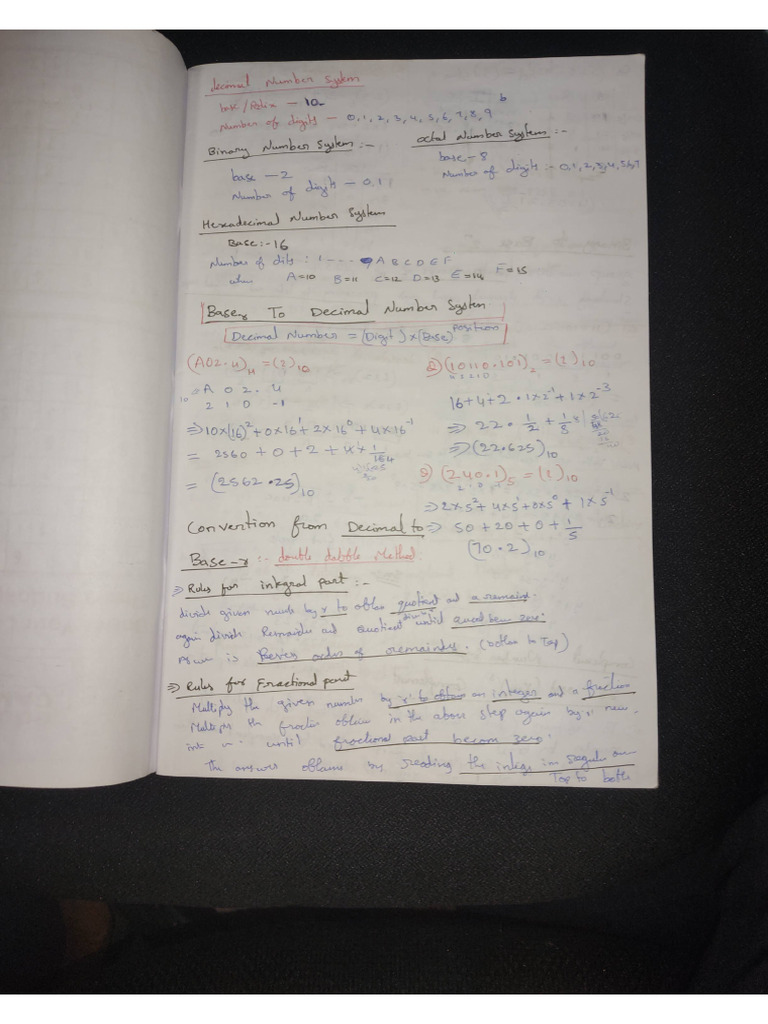 Decimal Number System
base/Radix - 10
Number of digits - 0,1,2,3,4,5,6,7,8,9
Binary Number System :-
base - 2
Number of digit - 0,1
octal Number System :-
base - 8
Number of digit :- 0,1,2,3,4,5,6,7
Hexadecimal Number System
Base :- 16
Number of dits : 1 ---- 9 A B C D E F
when A=10 B=11 C=12 D=13 E=14 F=15
Base r To Decimal Number System
Decimal Number = (Digit) x (Base)^position
(A02.4)H = (?)10
A 0 2 . 4
2 1 0 -1
⇒ 10x(16)² + 0x16¹ + 2x16⁰ + 4x16⁻¹
= 2560 + 0 + 2 + 4x
= (2562.25)10
2) (10110.101)2 = (?)10
16+4+2 . 1x2⁻¹ + 1x2⁻³
⇒ 22 . 1/2 + 1/8
⇒ (22.625)10
(240.1)5 = (?)10
⇒ 2x5² + 4x5¹ + 0x5⁰ + 1x5⁻¹
⇒ 50 + 20 + 0 + 1/5
(70.2)10
Convertion from Decimal to
Base-r :- double dabble Method
⇒ Rules for integral part :-
divide given by r to obtain quotient and a
again divide and Quotient until zero.
is order of remainder. (bottom to Top)
⇒ Rules for Fractional part
Multiply the given number by 'r' to obtain an integer and a fraction
Multiply the obtain in the above step again by 'r' new
until fractional part become zero.
The answer obtain by reading the in
Top to